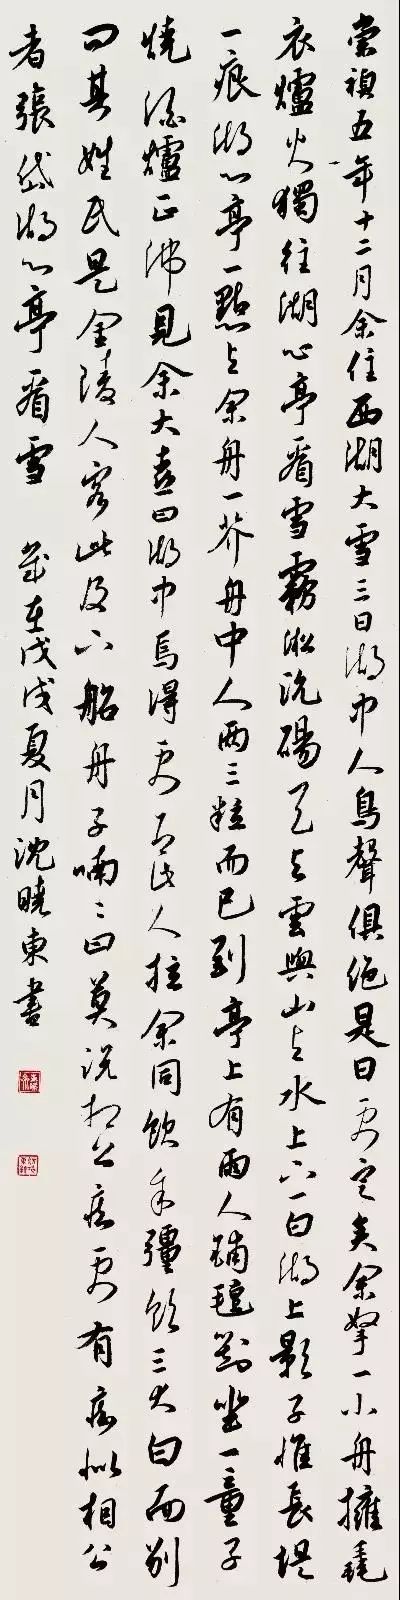 崇禎五年十二月余住西湖大雪三日湖中人鳥聲俱絕是日更定矣余拏一小舟擁毳
衣爐火獨往湖心亭看雪霧凇沆碭天与雲與山与水上下一白湖上影子惟長堤
一痕湖心亭一點与余舟一芥舟中人兩三粒而已到亭上有兩人鋪氈對坐一童子
燒酒爐正沸見余大喜曰湖中焉得更有此人拉余同飲余彊飲三大白而別
問其姓氏是金陵人客此及下船舟子喃〻曰莫說相公癡更有癡似相公
者張岱湖心亭看雪 歲在戊戌夏月沈曉東書